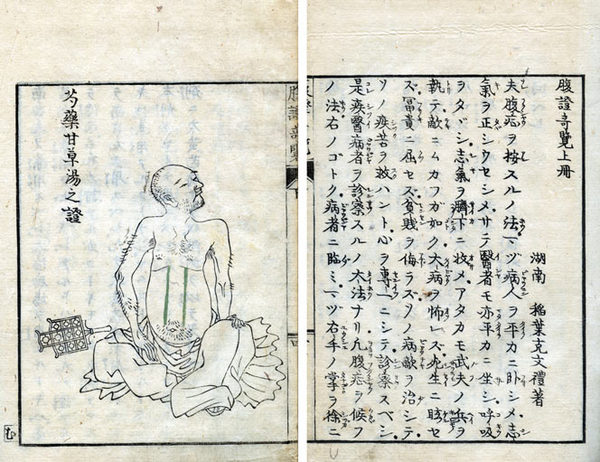 腹證奇覽上冊
湖南　稲葉克文禮著
夫腹症ヲ按スルノ法マヅ病人ヲ平カニ卧シメ志
氣ヲ正シクセシメサテ醫者モ亦平カニ坐シ呼吸
ヲタヾシ志氣ヲ臍下ニ收メアタカモ武夫ノ兵ヲ
執テ敵ニムカフガ如ク大病ヲ怖レズ死生ニ眩セ
ズ冨貴ニ屈セズ貧賤ヲ侮ラズ病敵ヲ治シテ
ソノ疾苦ヲ救ハント心ヲ専ニシテ診察スベシ
是疾醫病者ヲ診察スルノ大法ナリ凡腹症ヲ候フ
ノ法右ノゴトク病者ニ臨ミマヅ右手ノ掌ヲ徐ニ
腹證奇覽
芍藥甘草湯之證